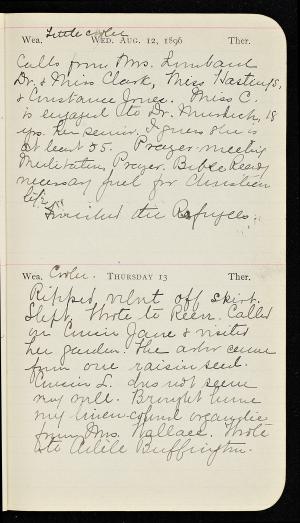 Wea. Little cooler WED. AUG. 12, 1896 Ther.
Calls from Mrs. Lombard
Dr. & Miss Clark, Miss Hastings,
& Constance Jones. Miss C.
is engaged to Dr. Murdock, 18
yrs. her senior. I guess she is
at least 35. Prayer-meeting
Meditation, Prayer. Bible Reading
necessary fuel for Christian
life."
Finished the Refugees.
Wea. Cooler. THURSDAY 13 Ther.
Ripped velvet off skirt.
Slept. Wrote to Reen. Called
on Cousin Jane & visited
her garden. The arbor came
from one raisin seed.
Cousin L. does not seem
very well. Brought home
my linen-colored organdie
from Mrs. Wallace. Wrote
to Adele Buffington.